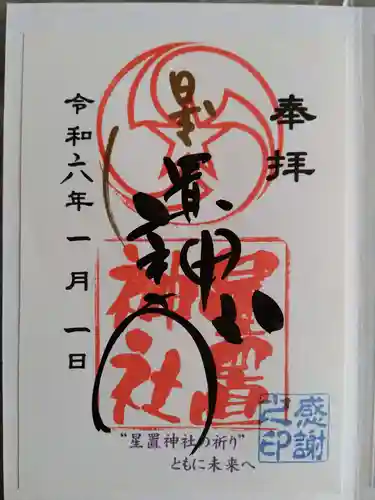 奉拝
星置神社
星置神社
令和六年一月一日
感謝之印
"星置神社の祈り"
ともに未来へ